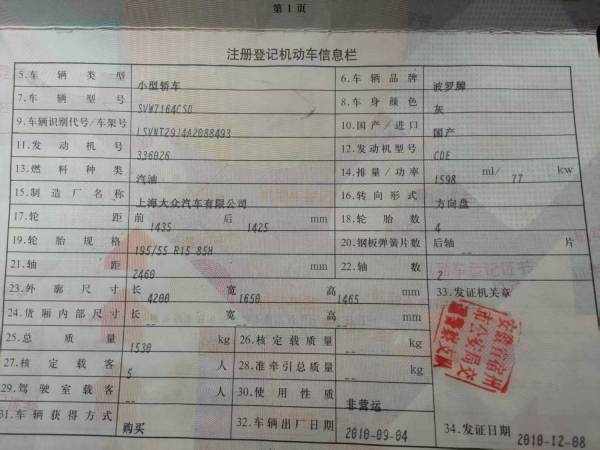 第1页
注册登记机动车信息栏
5.车辆类型 小型轿车 6.车辆品牌 波罗牌
7.车辆型号 SVW7164CSD 8.车身颜色 灰
9.车辆识别代号/车架号 LSVNT2914A2088493 10.国产/进口 国产
11.发动机号 336026 12.发动机型号 CDE
13.燃料种类 汽油 14.排量/功率 1598 ml/ 77 kw
15.制造厂名称 上海大众汽车有限公司 16.转向形式 方向盘
17.轮距 前 1435 后 1425 mm 18.轮胎数 4
19.轮胎规格 195/55 R15 85H 20.钢板弹簧片数 后轴 -- 片
21.轴距 2460 mm 22.轴数 2
23.外廓尺寸 长 4200 宽 1650 高 1465 mm 33.发证机关章
24.货厢内部尺寸 长 -- 宽 -- 高 -- mm
25.总质量 1530 kg 26.核定载质量 -- kg
27.核定载客 5 人 28.准牵引总质量 -- kg
29.驾驶室载客 -- 人 30.使用性质 非营运
31.车辆获得方式 购买 32.车辆出厂日期 2010-09-04 34.发证日期 2010-12-08